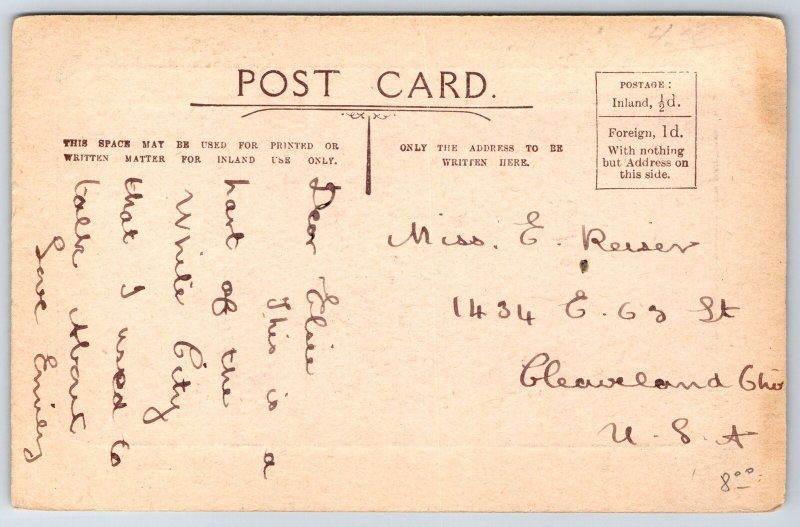 POST CARD.
POSTAGE:
Inland, ½d.
Foreign, 1d.
With nothing
but Address on
this side.
THIS SPACE MAY BE USED FOR PRINTED OR
WRITTEN MATTER FOR INLAND USE ONLY.
ONLY THE ADDRESS TO BE
WRITTEN HERE.
Dear Elsie
This is a
part of the
White City
that I used to
talk About
Love Emiley
Miss. E. Reiser
1434 E. 63 St
Cleaveland Ohio
U. S. A
8.00